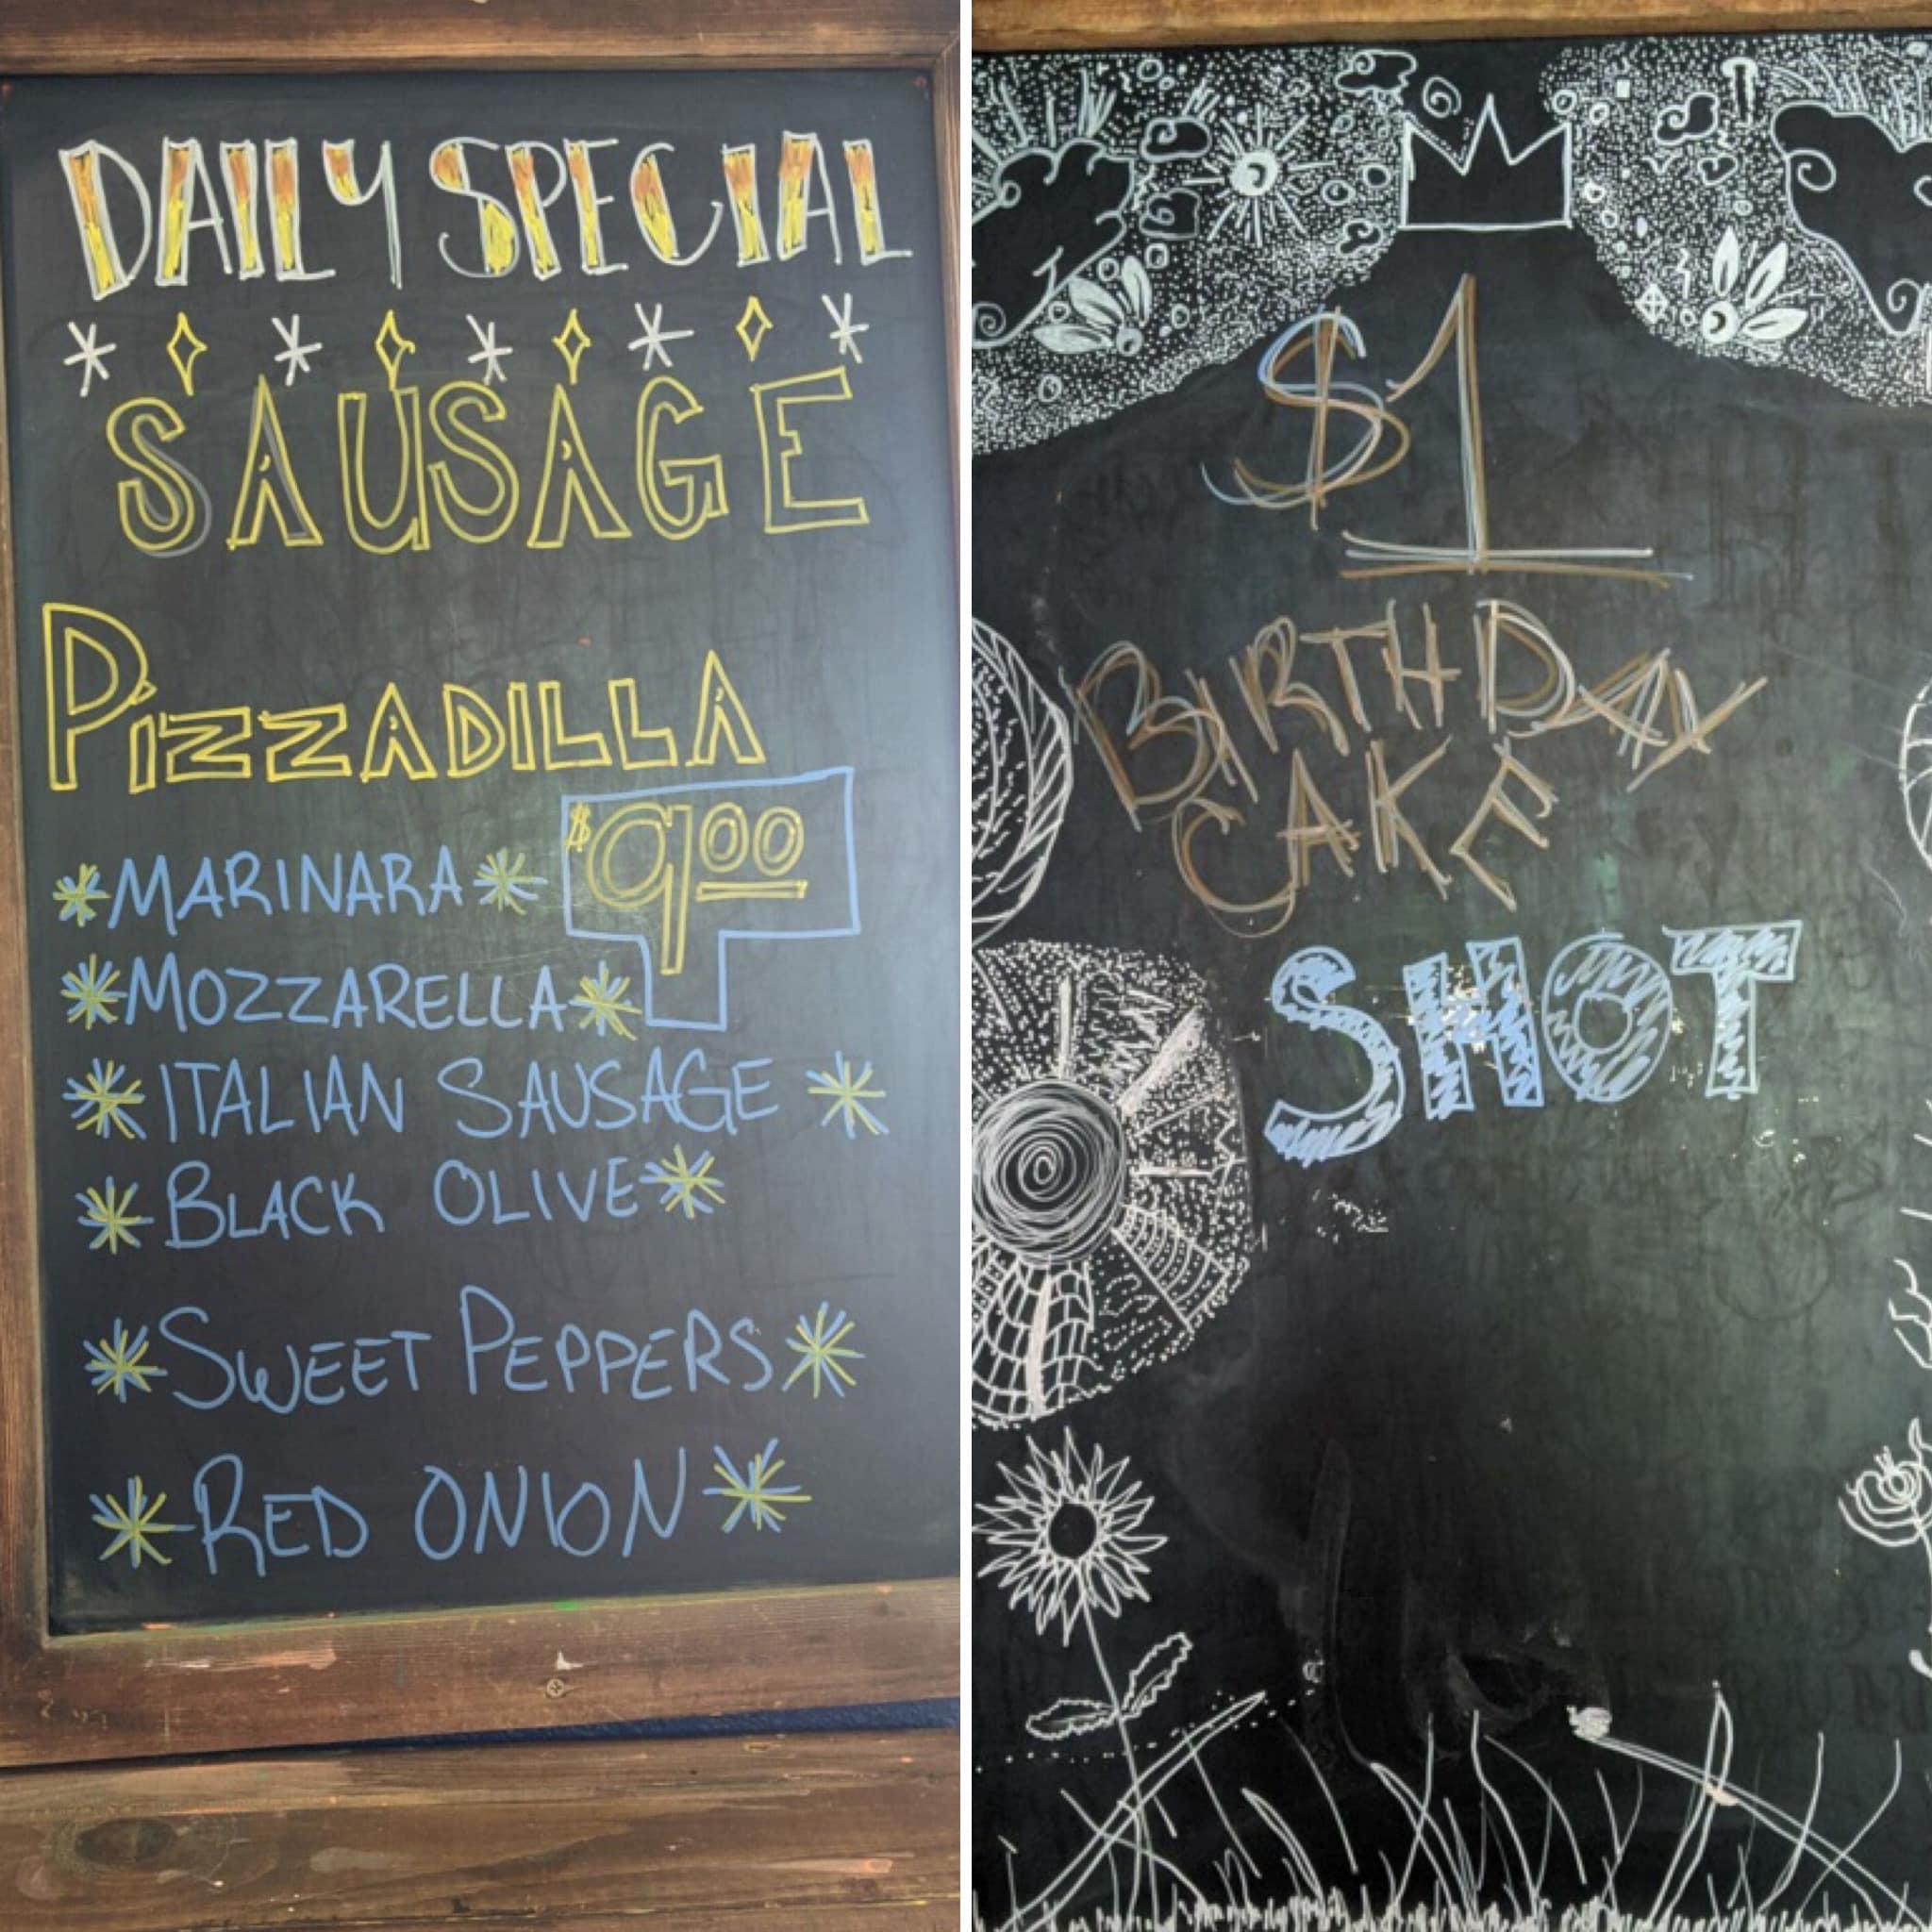 DAILY SPECIAL
SAUSAGE
PIZZADILLA
$900
MARINARA
MOZZARELLA
ITALIAN SAUSAGE
BLACK OLIVE
SWEET PEPPERS
RED ONION
$1
BIRTHDAY
CAKE
SHOT